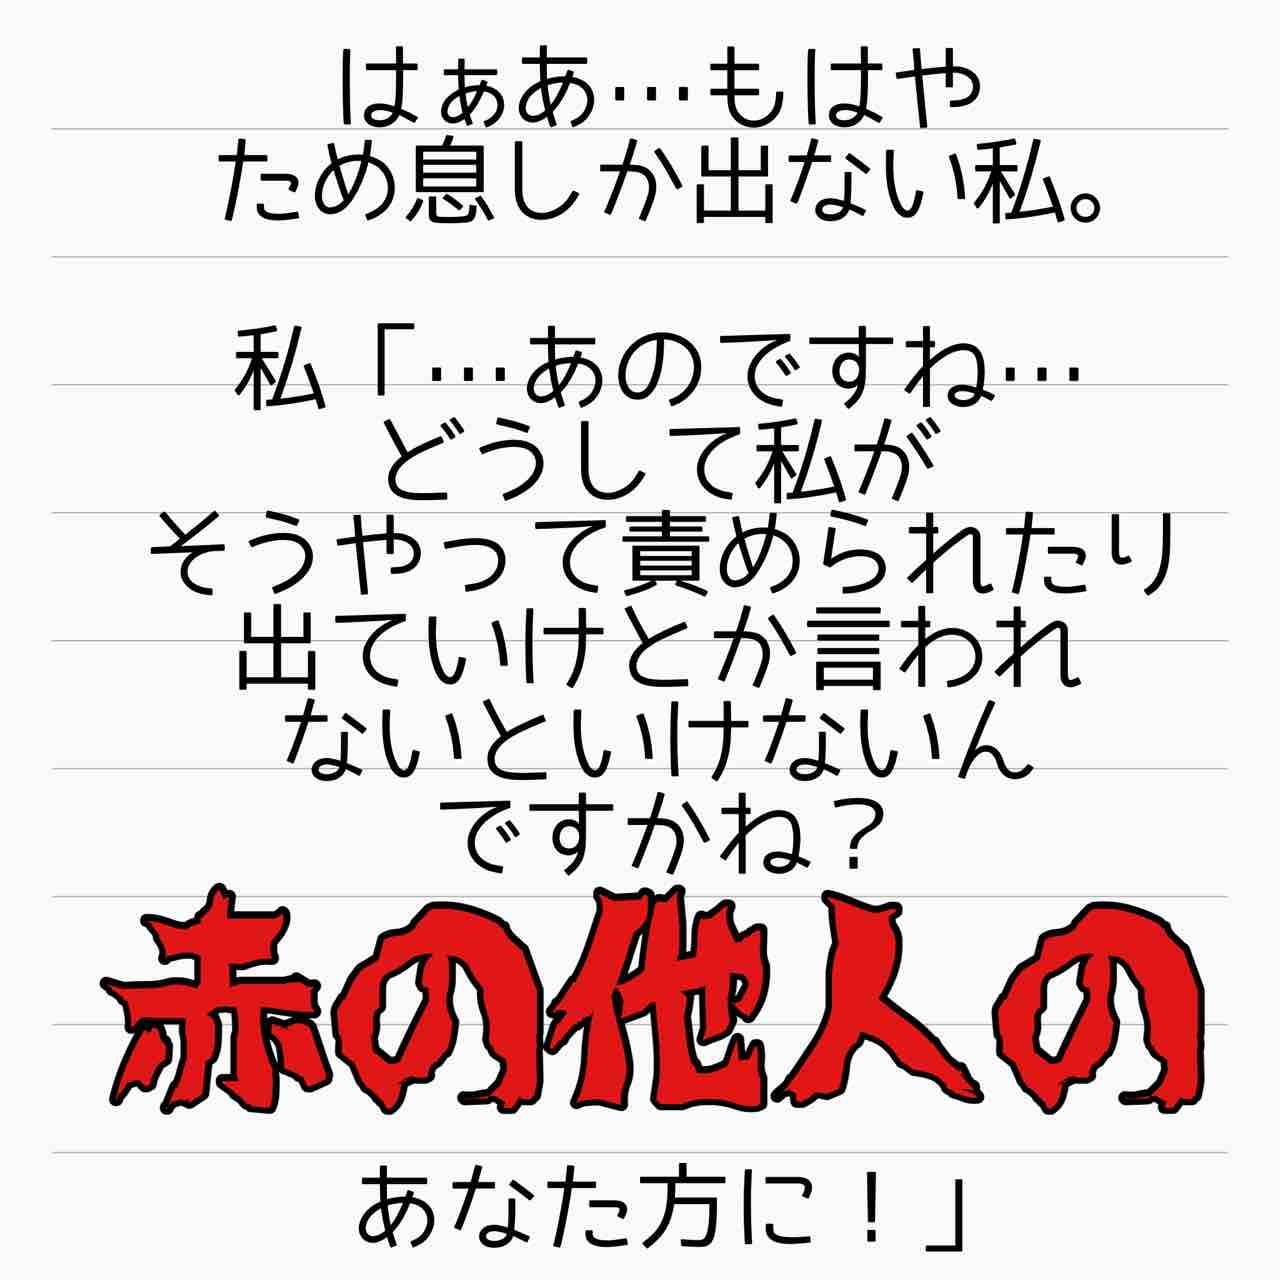 はぁあ…もはや
ため息しか出ない私。
私「…あのですね…
どうして私が
そうやって責められたり
出ていけとか言われ
ないといけないん
ですかね？
赤の他人の
あなた方に！」